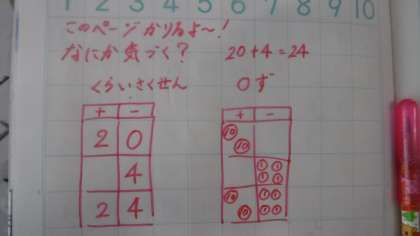 1 2 3 4 5 6 7 8 9 10
このページかりるよ〜!
なにか気づく? 20+4=24
くらいさくせん 0ず
+ - + -
2 0 10 10
4 1 1 1 1
2 4 10 10 1 1 1 1